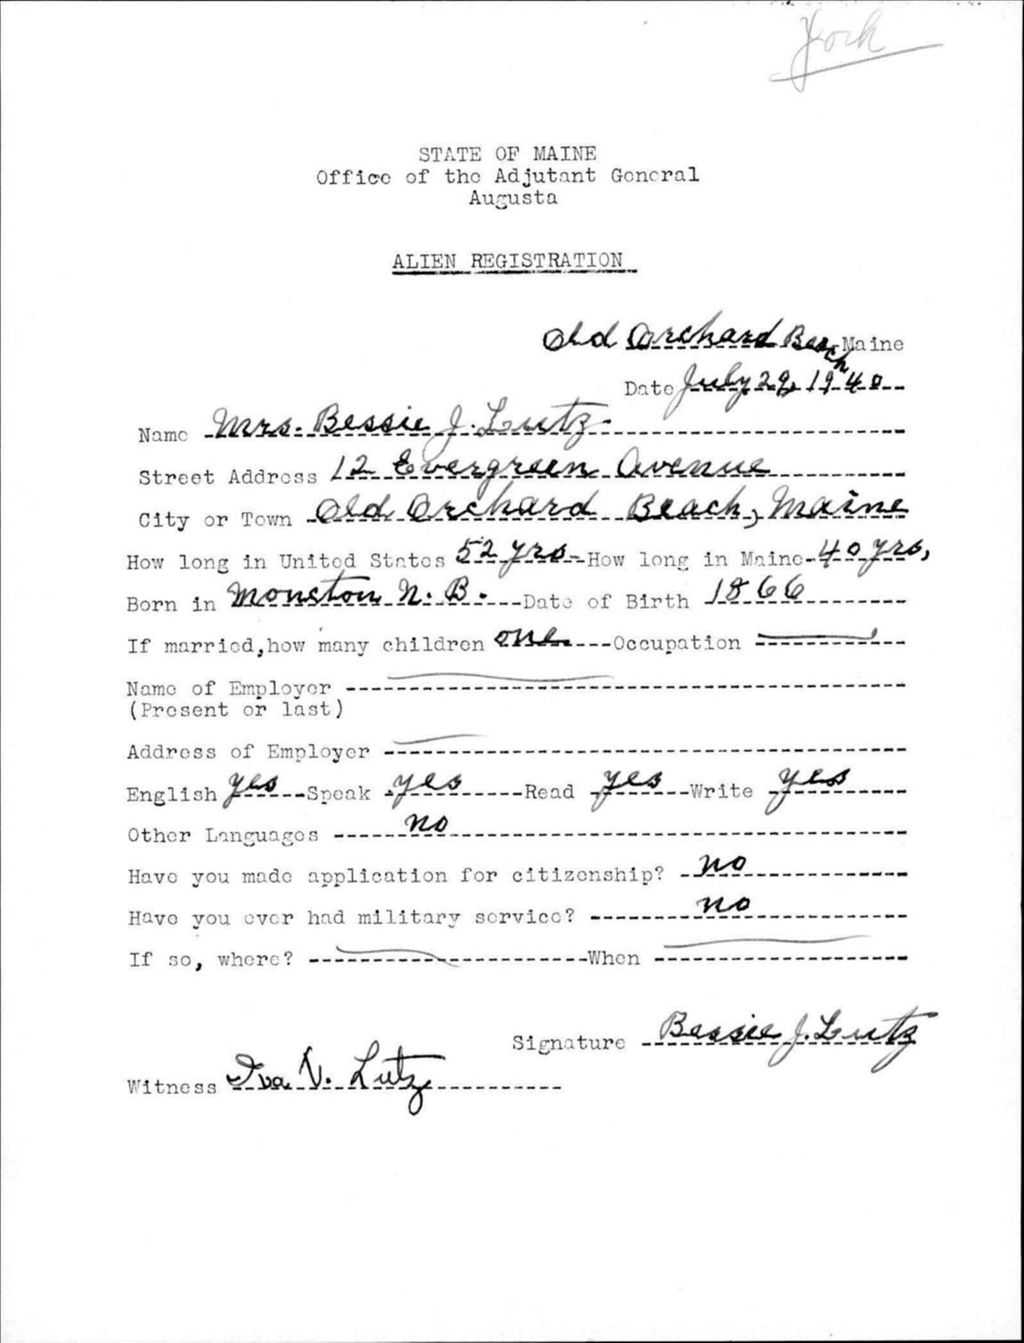 York
STATE OF MAINE
Office of the Adjutant General
Augusta
ALIEN REGISTRATION
Old Orchard Beach Maine
Date July 29, 1940
Name Mrs. Bessie J. Lutz
Street Address 12 Evergreen Avenue
City or Town Old Orchard Beach, Maine
How long in United States 52 yrs How long in Maine 40 yrs,
Born in Monston N. B. Date of Birth 1866
If married, how many children one Occupation
Name of Employer
(Present or last)
Address of Employer
English yes Speak yes Read yes Write yes
Other Languages no
Have you made application for citizenship? no
Have you ever had military service? no
If so, where? When
Signature Bessie J. Lutz
Witness Iva V. Lutz